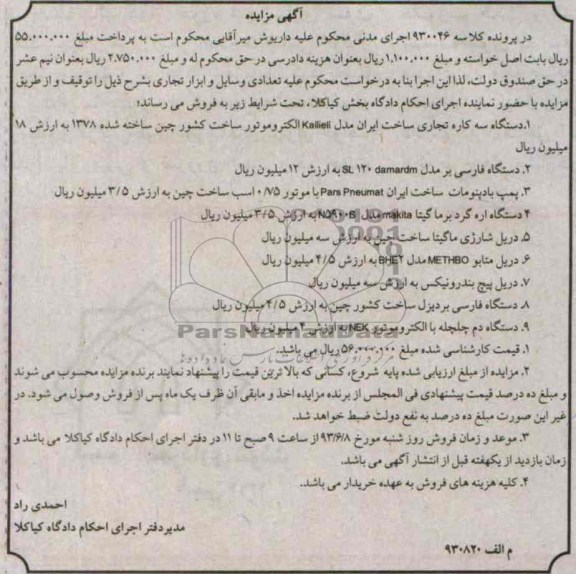 آگهی مزایده
در پرونده کلاسه ۹۳۰۰۴۶ اجرای مدنی محکوم علیه داریوش میرآقایی محکوم است به پرداخت مبلغ ۵۵.۰۰۰.۰۰۰
ریال بابت اصل خواسته و مبلغ ۱.۱۰۰.۰۰۰ ریال بعنوان هزینه دادرسی در حق محکوم له و مبلغ ۲.۷۵۰.۰۰۰ ریال بعنوان نیم عشر
در حق صندوق دولت، لذا این اجرا بنا به درخواست محکوم علیه تعدادی وسایل و ابزار تجاری بشرح ذیل را توقیف و از طریق
مزایده با حضور نماینده اجرای احکام دادگاه بخش کیاکلا، تحت شرایط زیر به فروش می رساند؛
۱.دستگاه سه کاره تجاری ساخت ایران مدل Kailieli الکتروموتور ساخت کشور چین ساخته شده ۱۳۷۸ به ارزش ۱۸
میلیون ریال
۲. دستگاه فارسی بر مدل SL ۱۲۰ damardm به ارزش ۱۲ میلیون ریال
۳. پمپ بادبنومات ساخت ایران Pars Pneumat با موتور ۰/۷۵ اسب ساخت چین به ارزش ۳/۵ میلیون ریال
۴ دستگاه اره گرد برما گیتا makita مدل N۵۹۰۰B به ارزش ۳/۵ میلیون ریال
۵. دریل شارژی ماگیتا ساخت چین به ارزش سه میلیون ریال
۶. دریل متابو METHBO مدل BHE۲ به ارزش ۴/۵ میلیون ریال
۷. دریل پیچ بندرونیکس به ارزش سه میلیون ریال
۸. دستگاه فارسی بردیزل ساخت کشور چین به ارزش ۴/۵ میلیون ریال
۹. دستگاه دم چلچله با الکتروموتور NEK به ارزش ۴ میلیون ریال
ParsNamadData
۱. قیمت کارشناسی شده مبلغ ۵۶.۰۰۰.۰۰۰ ریال می باشد.
۲. مزایده از مبلغ ارزیابی شده پایه شروع، کسانی که بالا ترین قیمت را پیشنهاد نمایند برنده مزایده محسوب می شوند
و مبلغ ده درصد قیمت پیشنهادی فی المجلس از برنده مزایده اخذ و مابقی آن ظرف یک ماه پس از فروش وصول می شود. در
غیر این صورت مبلغ ده درصد به نفع دولت ضبط خواهد شد.
۳. موعد و زمان فروش روز شنبه مورخ ۹۳/۶/۸ از ساعت ۹ صبح تا ۱۱ در دفتر اجرای احکام دادگاه کیاکلا می باشد و
زمان بازدید از یکهفته قبل از انتشار آگهی می باشد.
۴. کلیه هزینه های فروش به عهده خریدار می باشد.
احمدی راد
مدیردفتر اجرای احکام دادگاه کیاکلا
م الف ۹۳۰۸۲۰